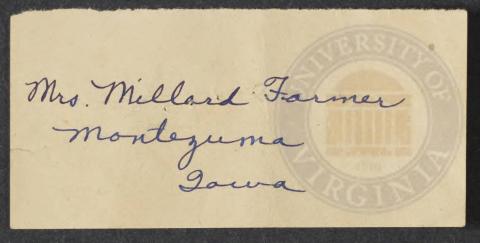 Mrs. Millard Farmer
Montezuma
Iowa
UNIVERSITY OF
VIRGINIA